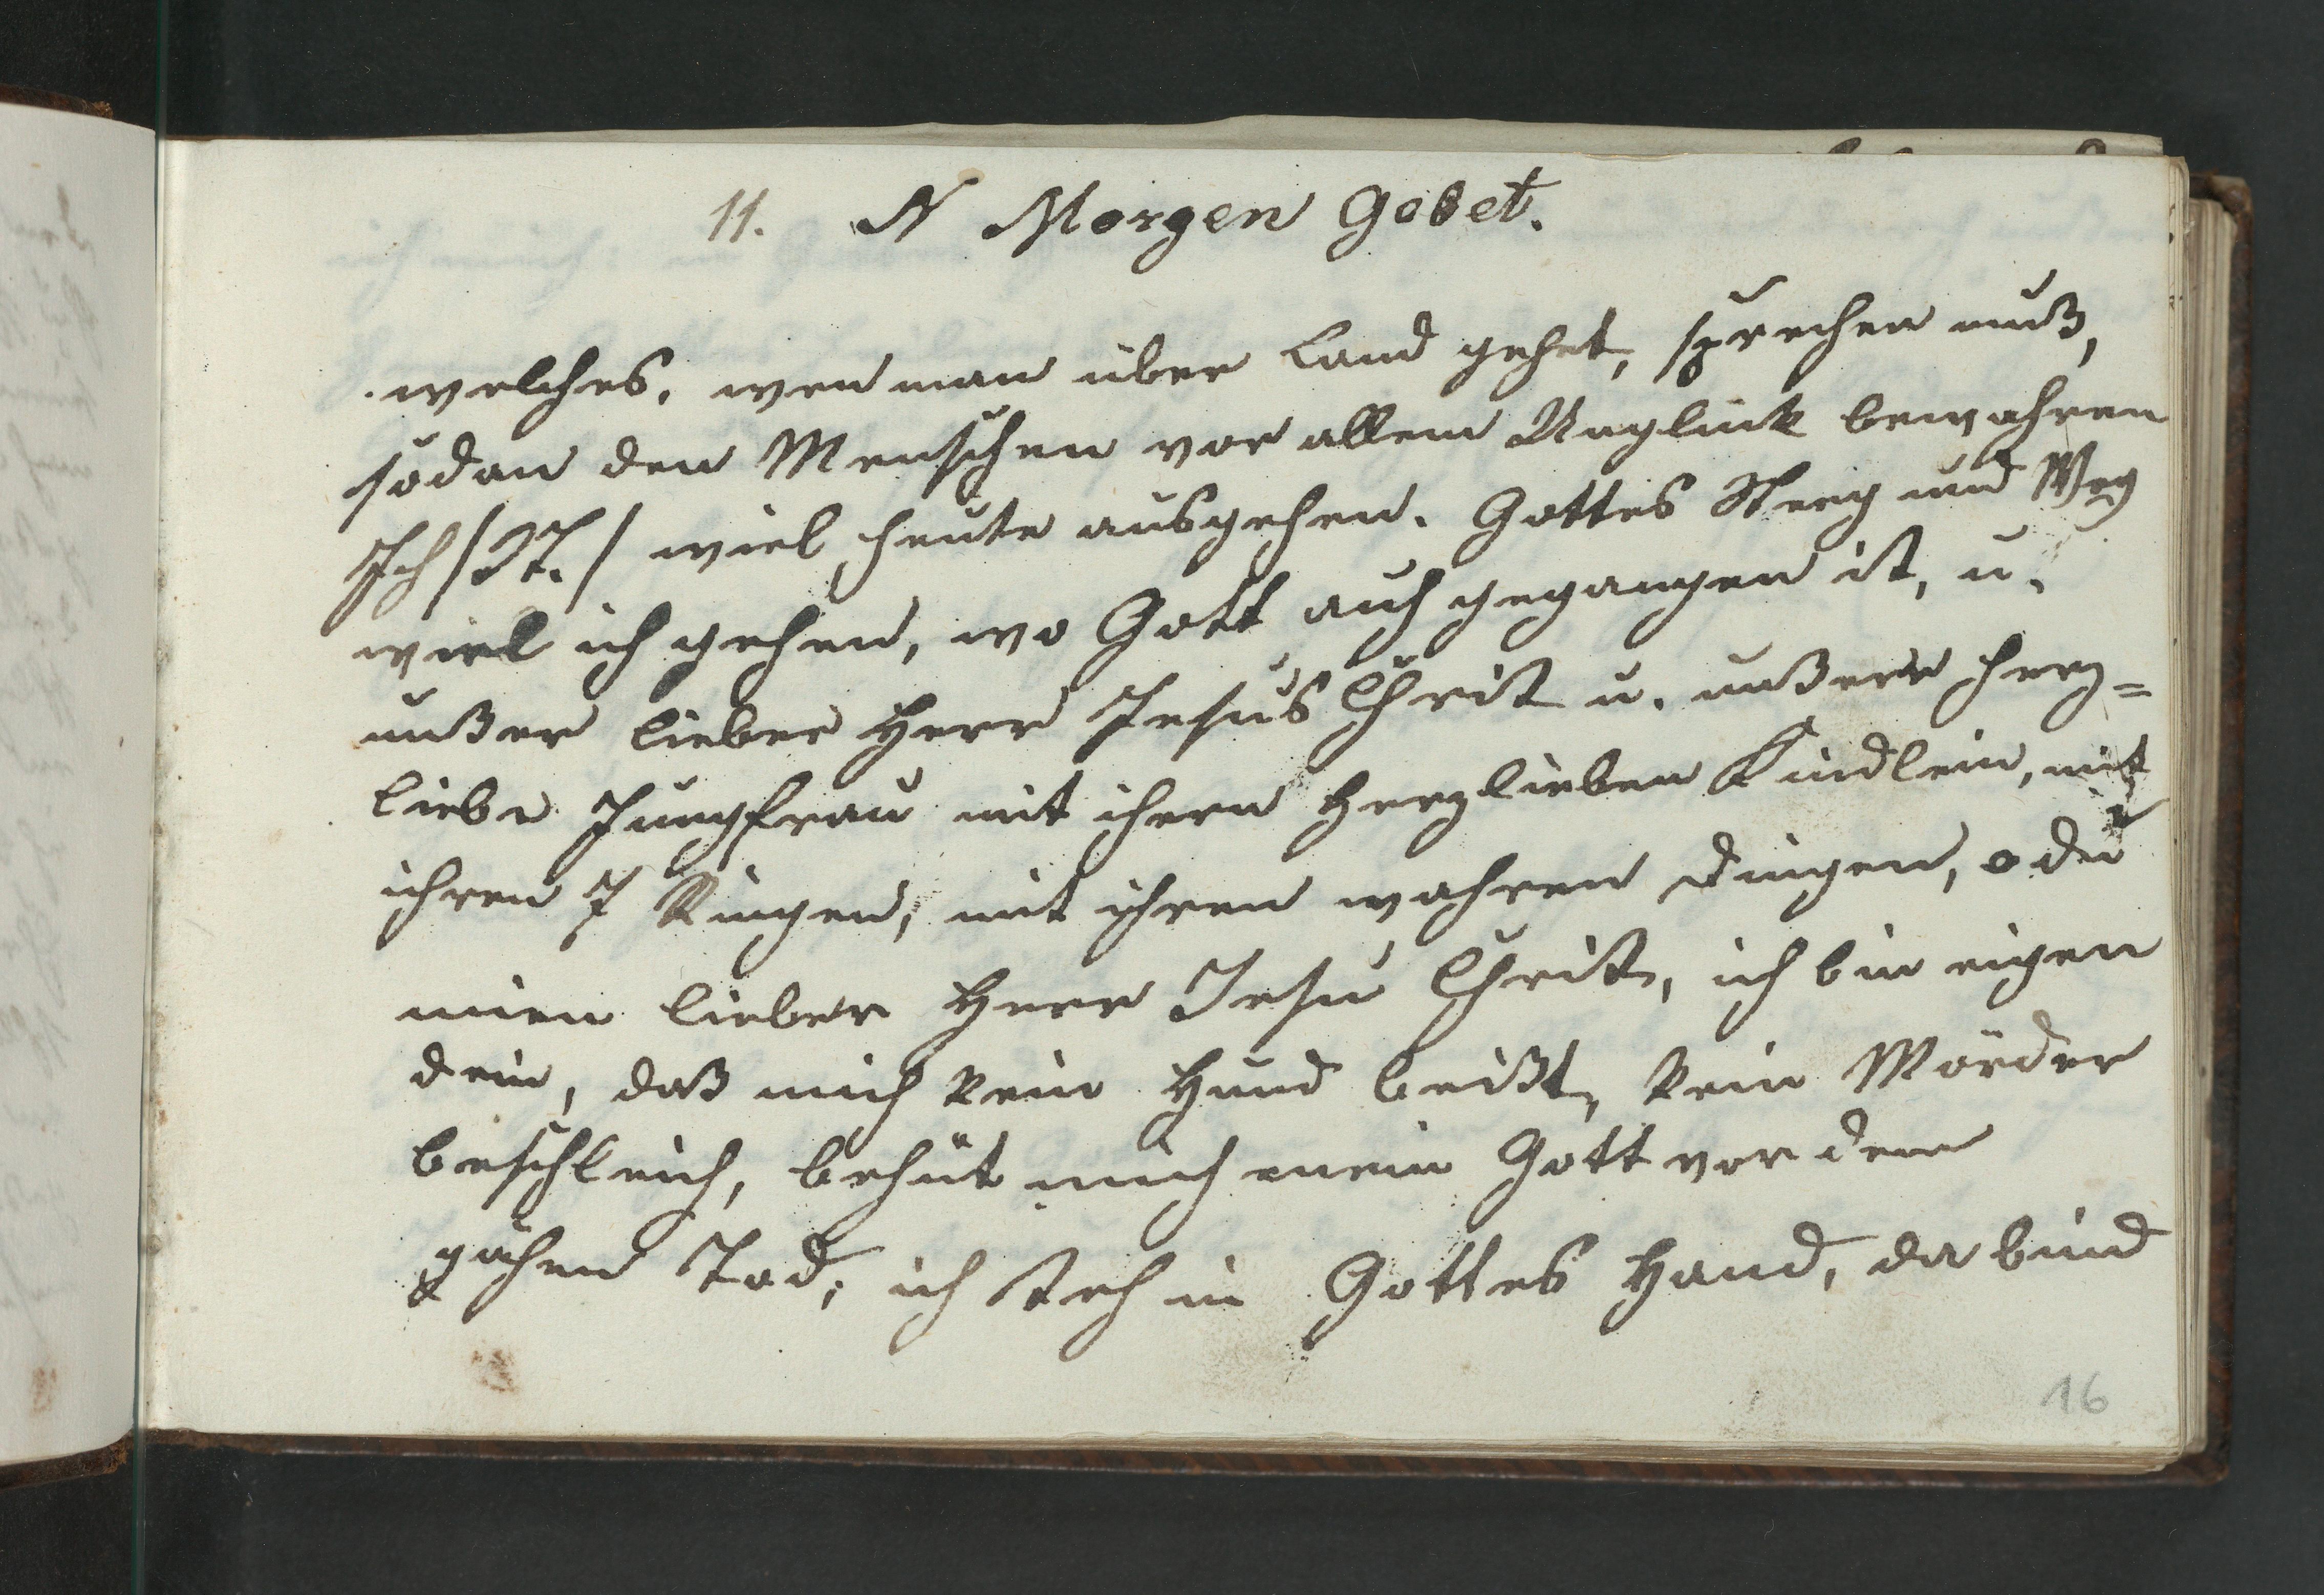 11. N Morgen Gebet.
welches, wen man über Land gehet, sprechen muß,
sodan den Menschen vor allem Unglück bewahren
Ich /:N:/ wiel heute ausgehen. Gottes Steeg und Weg
wiel ich gehen, wo Gott auch gegangen ist, u.
unßer lieber Herr Jesus Christ u. unßere herz=
liebe Jungfrau mit ihren Herzlieben Kindlein, mit
ihren 7 Ringen, mit ihren wahren Dingen, o du
mein lieber Herr Jesu Christ, ich bin eigen
dein, daß mich kein Hund beißt, kein Mörder
beschleich, behüt mich mein Gott vor dem
gähen Tod; ich steh in Gottes Hand, da bind
16